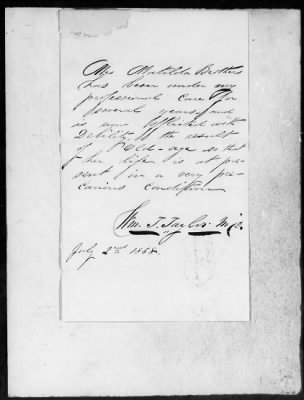 Mrs Matilda Brothers
has been under my
professional care for
several years, and
is now afflicted with
Debility, the result
of Old-age so that
her life is at pre
sent in a very pre
carious condition
Wm. T. Taylor M.D.
July 2nd 1868.